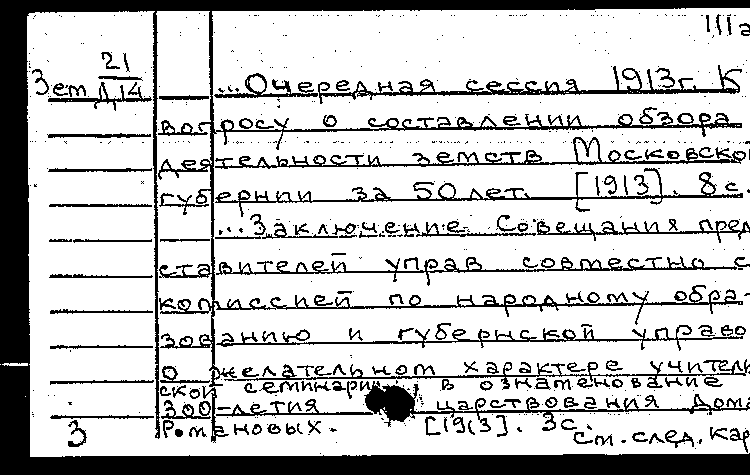 IIIа
Зет 21/Д14
...Очередная сессия 1913г. К
вопросу о составлении обзора
деятельности земств Московской
губернии за 50 лет. [1913]. 8 с.
...Заключение Совещания пред
ставителей управ совместно с
комиссией по народному обра-
зованию и губернской управо
о желательном характере учитель
ской семинарии в ознаменование
300-летия царствования Дома
Романовых. [1913]. 3с.
3
См. след. кар